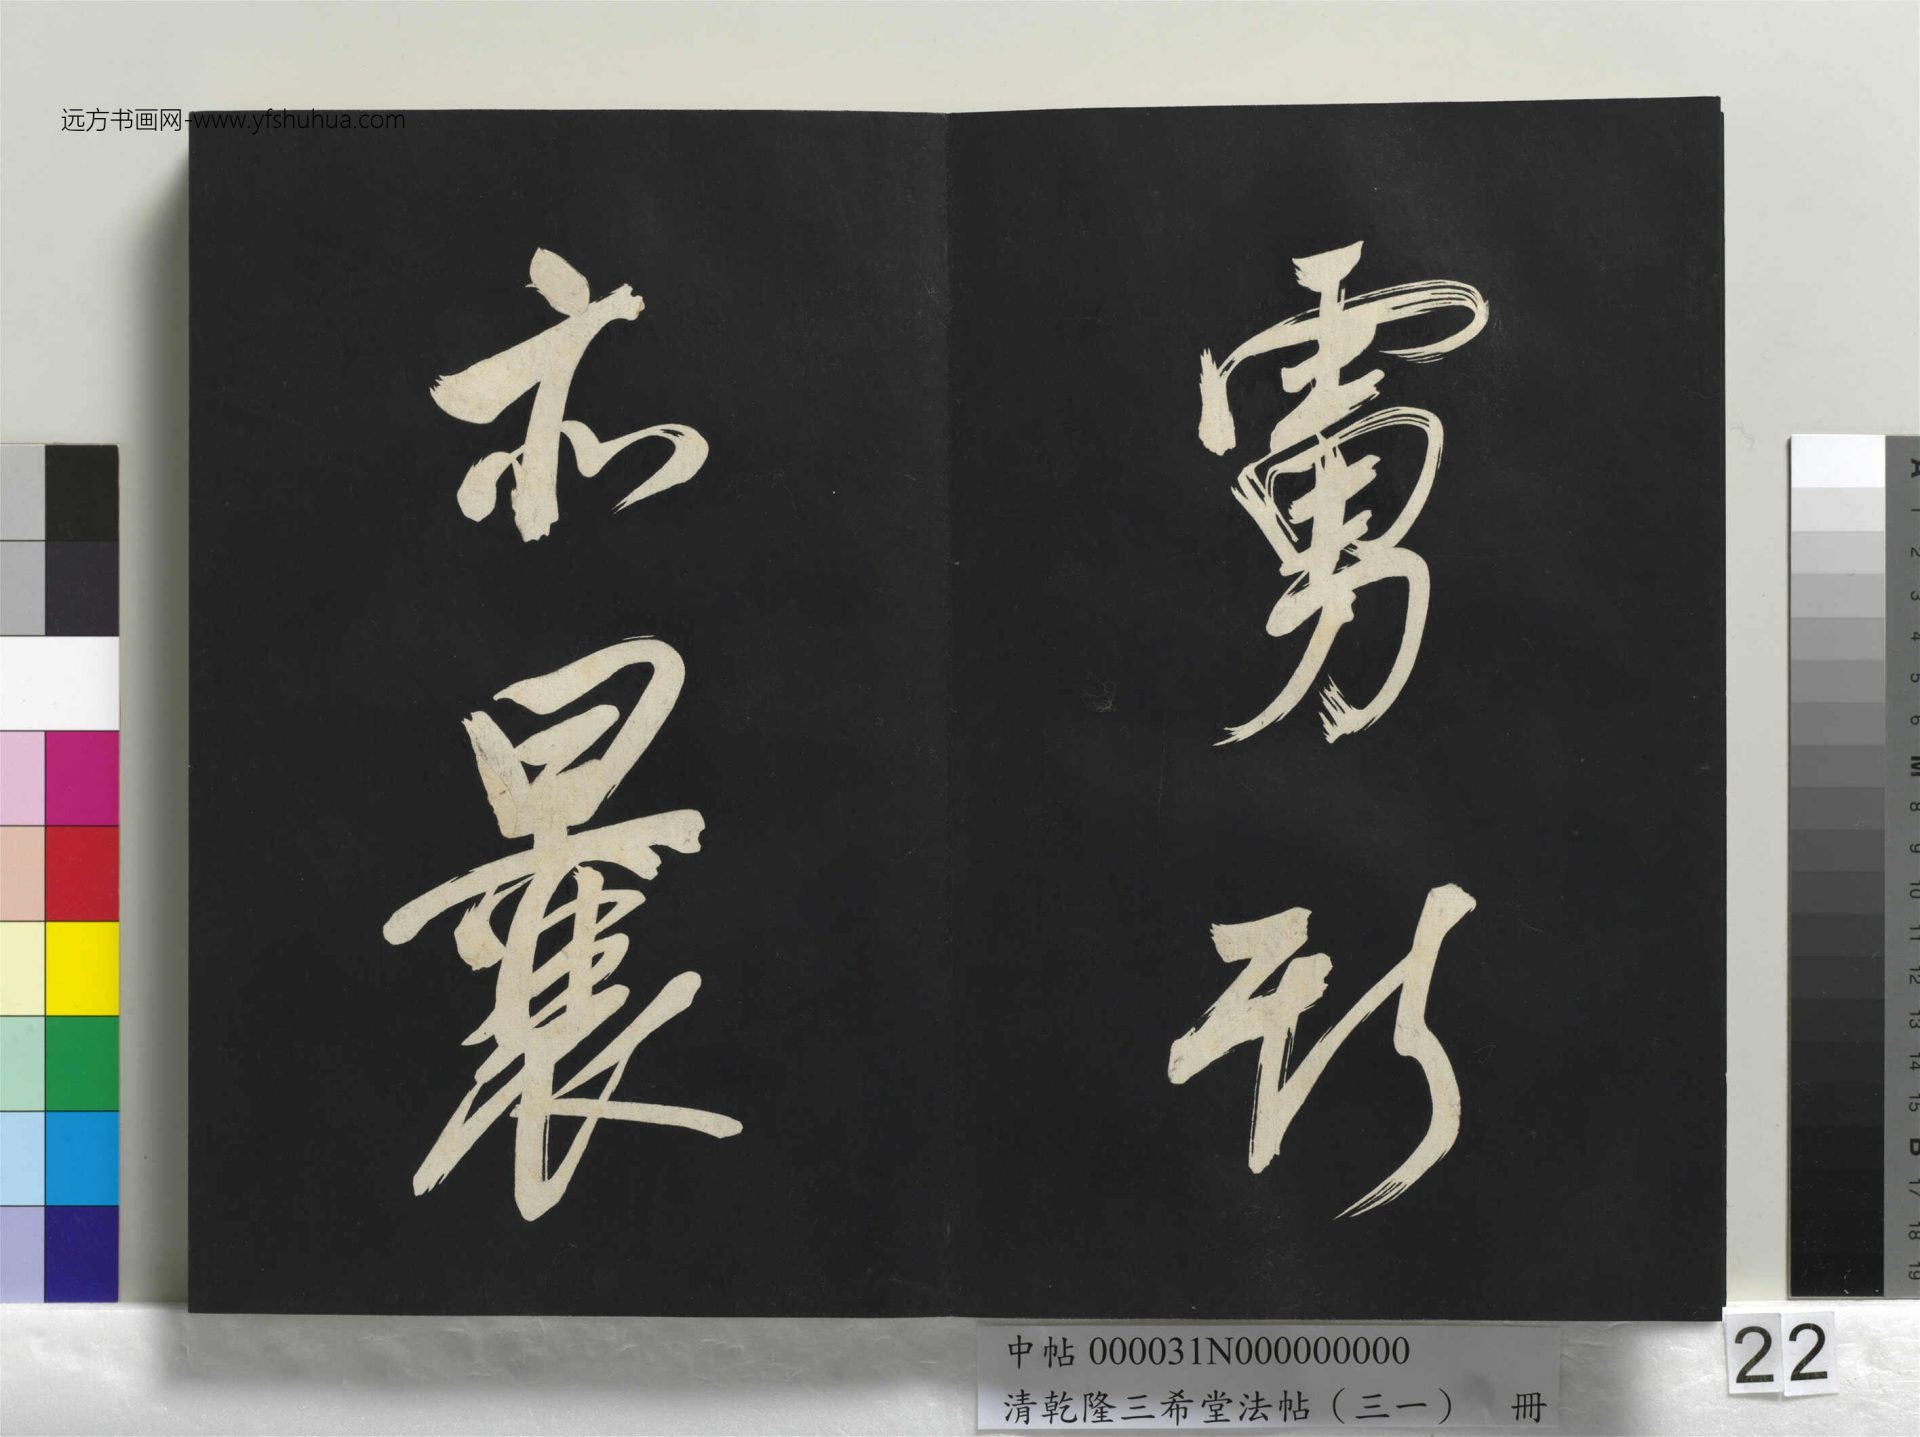 远方书画网-www.yfshuhua.com
形
亦曩
中帖 000031N000000000
清乾隆三希堂法帖（三一） 冊
22
A 1 2 3 4 5 6 M 8 9 10 11 12 13 14 15 B 17 18 19